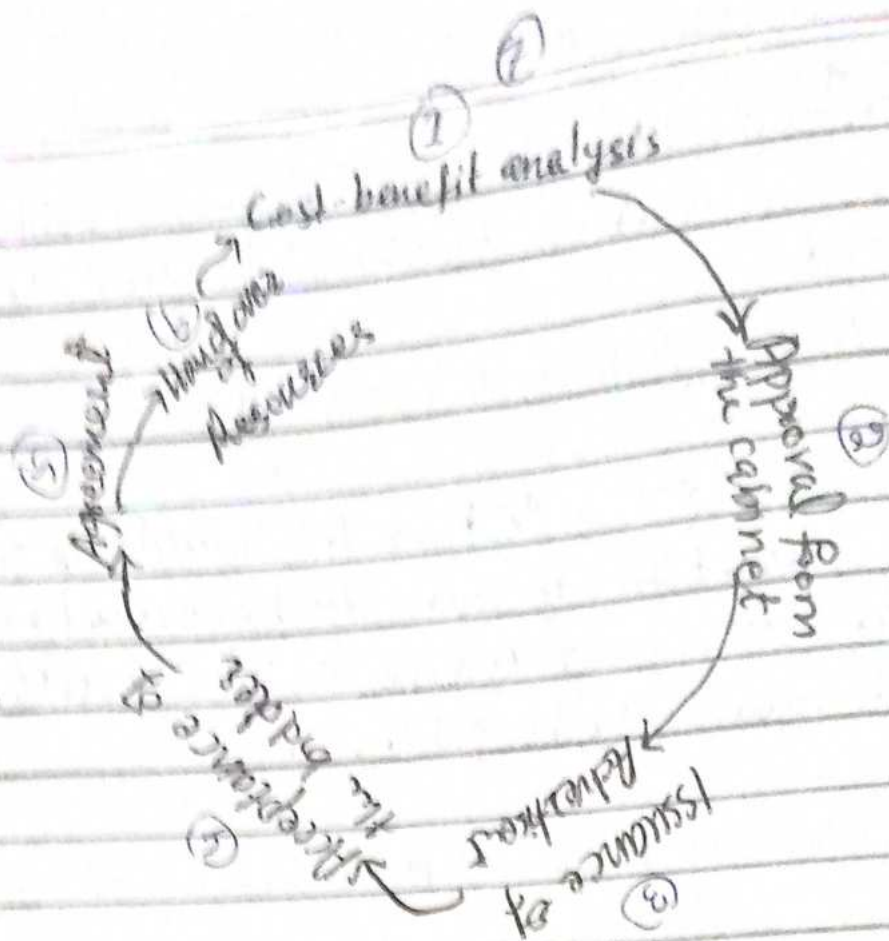 ②
①
Cost-benefit analysis
②
Approval from
the cabinet
③
Issuance of
④
Acceptance of
the bidder
⑤
Agreement
⑥
Hand over
of
Resources